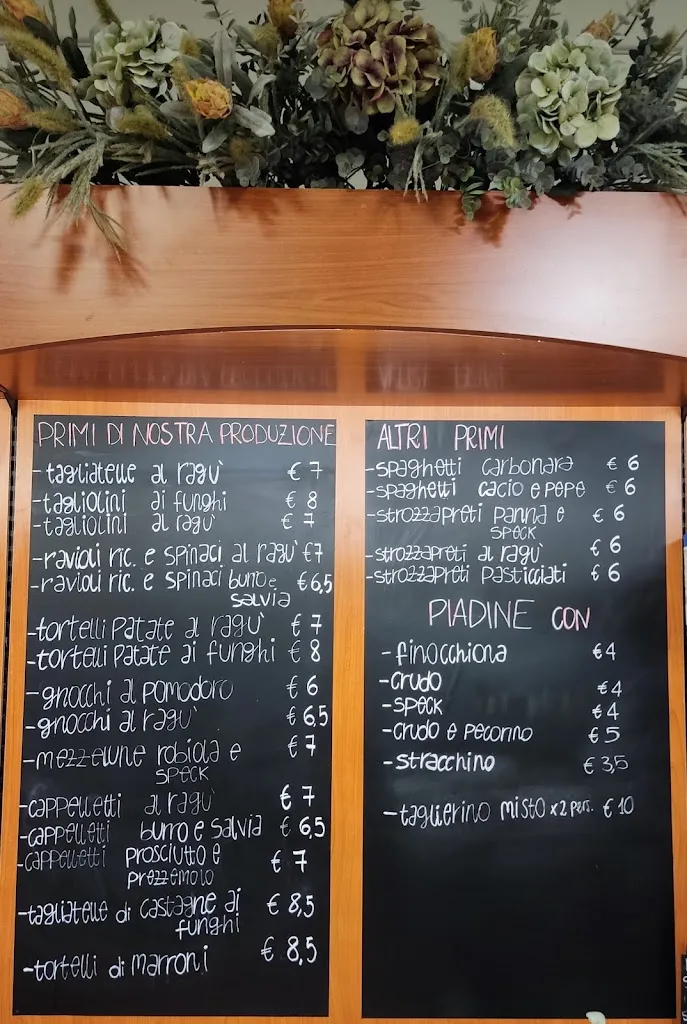 PRIMI DI NOSTRA PRODUZIONE
-tagliatelle al ragù € 7
-tagliolini ai funghi € 8
-tagliolini al ragù € 7
-ravioli ric. e spinaci al ragù €7
-ravioli ric. e spinaci burro e €6,5
salvia
-tortelli patate al ragù € 7
-tortelli patate ai funghi € 8
-gnocchi al pomodoro € 6
-gnocchi al ragù € 6,5
-mezzelune robiola e € 7
speck
-cappelletti al ragù € 7
-cappelletti burro e salvia € 6,5
-cappelletti prosciutto e € 7
prezzemolo
-tagliatelle di castagne ai € 8,5
funghi
-tortelli di marroni € 8,5
ALTRI PRIMI
-spaghetti carbonara € 6
-spaghetti cacio e pepe € 6
-strozzapreti panna e € 6
speck
-strozzapreti al ragù € 6
-strozzapreti pasticciati € 6
PIADINE CON
-finocchiona €4
-crudo €4
-speck €4
-crudo e pecorino €5
-stracchino € 3,5
-taglierino misto x 2 pers. € 10